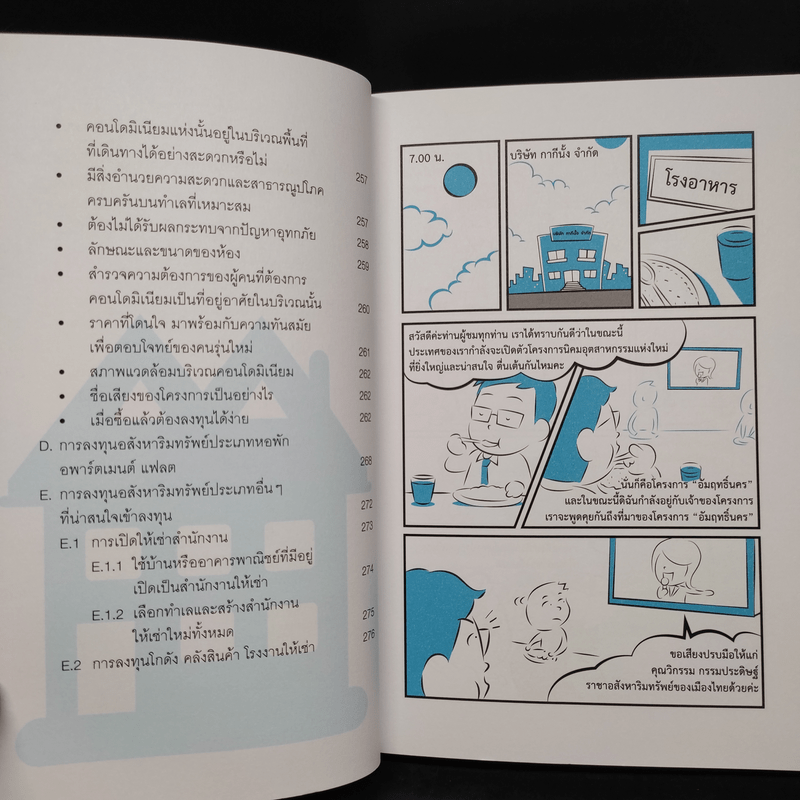 • คอนโดมิเนียมแห่งนั้นอยู่ในบริเวณพื้นที่
ที่เดินทางได้อย่างสะดวกหรือไม่ 257
• มีสิ่งอำนวยความสะดวกและสาธารณูปโภค
ครบครันบนทำเลที่เหมาะสม 257
• ต้องไม่ได้รับผลกระทบจากปัญหาอุทกภัย 258
• ลักษณะและขนาดของห้อง 259
• สำรวจความต้องการของผู้คนที่ต้องการ
คอนโดมิเนียมเป็นที่อยู่อาศัยในบริเวณนั้น 260
• ราคาที่โดนใจ มาพร้อมกับความทันสมัย
เพื่อตอบโจทย์ของคนรุ่นใหม่ 261
• สภาพแวดล้อมบริเวณคอนโดมิเนียม 262
• ชื่อเสียงของโครงการเป็นอย่างไร 262
• เมื่อซื้อแล้วต้องลงทุนได้ง่าย 262
D. การลงทุนอสังหาริมทรัพย์ประเภทหอพัก
อพาร์ตเมนต์ แฟลต 268
E. การลงทุนอสังหาริมทรัพย์ประเภทอื่นๆ
ที่น่าสนใจเข้าลงทุน 272
E.1 การเปิดให้เช่าสำนักงาน 273
E.1.1 ใช้บ้านหรืออาคารพาณิชย์ที่มีอยู่
เปิดเป็นสำนักงานให้เช่า 274
E.1.2 เลือกทำเลและสร้างสำนักงาน
ให้เช่าใหม่ทั้งหมด 275
E.2 การลงทุนโกดัง คลังสินค้า โรงงานให้เช่า 276
7.00 น.
บริษัท กากีนั้ง จำกัด
บริษัท กากีนั้ง จำกัด
โรงอาหาร
สวัสดีค่ะท่านผู้ชมทุกท่าน เราได้ทราบกันดีว่าในขณะนี้
ประเทศของเรากำลังจะเปิดตัวโครงการนิคมอุตสาหกรรมแห่งใหม่
ที่ยิ่งใหญ่และน่าสนใจ ตื่นเต้นกันไหมคะ
นั่นก็คือโครงการ "อัมฤทธิ์นคร"
และในขณะนี้ดิฉันกำลังอยู่กับเจ้าของโครงการ
เราจะพูดคุยกันถึงที่มาของโครงการ "อัมฤทธิ์นคร"
ขอเสียงปรบมือให้แก่
คุณวิกรรม กรรมประดิษฐ์
ราชาอสังหาริมทรัพย์ของเมืองไทยด้วยค่ะ